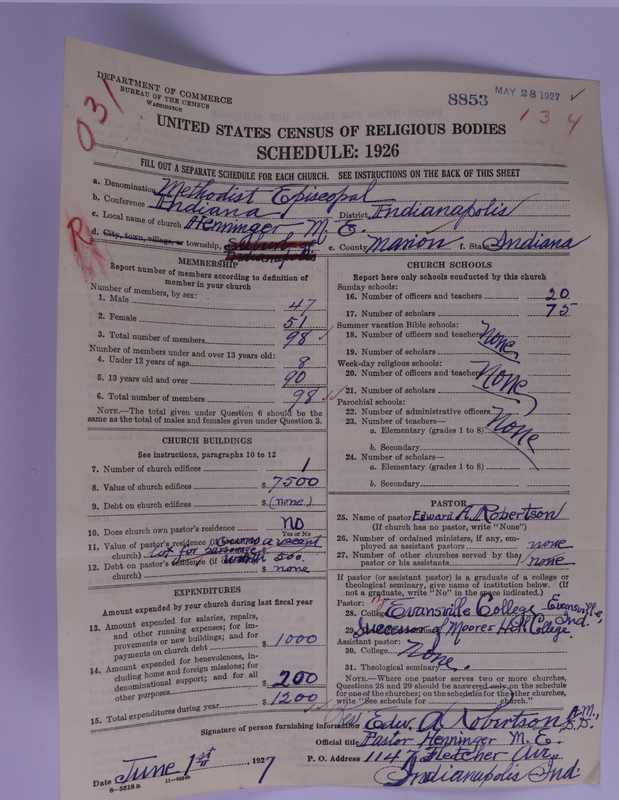 DEPARTMENT OF COMMERCE
BUREAU OF THE CENSUS
WASHINGTON
8853 MAY 28 1927
031
134
UNITED STATES CENSUS OF RELIGIOUS BODIES
SCHEDULE: 1926
FILL OUT A SEPARATE SCHEDULE FOR EACH CHURCH. SEE INSTRUCTIONS ON THE BACK OF THIS SHEET
a. Denomination Methodist Episcopal
b. Conference Indiana District Indianapolis
c. Local name of church Henninger M. E.
d. City, town, village, or township, Suburb of Indianapolis e. County Marion f. State Indiana
R
MEMBERSHIP
Report number of members according to definition of
member in your church
Number of members, by sex:
1. Male 47
2. Female 51
3. Total number of members 98
Number of members under and over 13 years old:
4. Under 13 years of age 8
5. 13 years old and over 90
6. Total number of members 98
NOTE.—The total given under Question 6 should be
the same as total of males and females given under Question 3.
CHURCH BUILDINGS
See instructions, paragraphs 10 to 12
7. Number of church edifices 1
8. Value of church edifices $7500
9. Debt on church edifices $(none)
10. Does church own pastor's residence No
Yes or No
11. Value of pastor's residence (if owned by church) (owns a vacant
lot for parsonage worth 500.
12. Debt on pastor's residence (if
church) $ none
EXPENDITURES
Amount expended by your church during last fiscal year
13. Amount expended for salaries, repairs,
and other running expenses; for im-
provements or new buildings; and for
payments on church debt $1000
14. Amount expended for benevolences, in-
cluding home and foreign missions; for
denominational support; and for all
other purposes $200
15. Total expenditures during year $1200
CHURCH SCHOOLS
Report here only schools conducted by this church
Sunday schools:
16. Number of officers and teachers 20
17. Number of scholars 75
Summer vacation Bible schools:
18. Number of officers and teachers None
19. Number of scholars
Week-day religious schools:
20. Number of officers and teachers None
21. Number of scholars
Parochial schools:
22. Number of administrative officers None
23. Number of teachers—
a. Elementary (grades 1 to 8)
b. Secondary
24. Number of scholars—
a. Elementary (grades 1 to 8)
b. Secondary
PASTOR
25. Name of pastor Edward A. Robertson
(If church has no pastor, write "None")
26. Number of ordained ministers, if any, em-
ployed as assistant pastors none
27. Number of other churches served by the
pastor or his assistants none
If pastor (or assistant pastor) is a graduate of a college or
theological seminary, give name of institution below. (If
not a graduate, write "No" in the space indicated.)
Pastor:
28. College Evansville College Evansville, Ind.
29. Successor of Moores Hill College
Assistant pastor:
30. College None.
31. Theological seminary
NOTE.—Where one pastor serves two or more churches,
Questions 28 and 29 should be answered only on the schedule
for one of the churches; on the schedules for the other churches,
write "See schedule for church."
Signature of person furnishing information Rev. Edw. A. Robertson A.M., D.D.
Official title Pastor Henninger M. E.
Date June 1st 1927 P. O. Address 1147 Fletcher Ave.,
Indianapolis Ind.